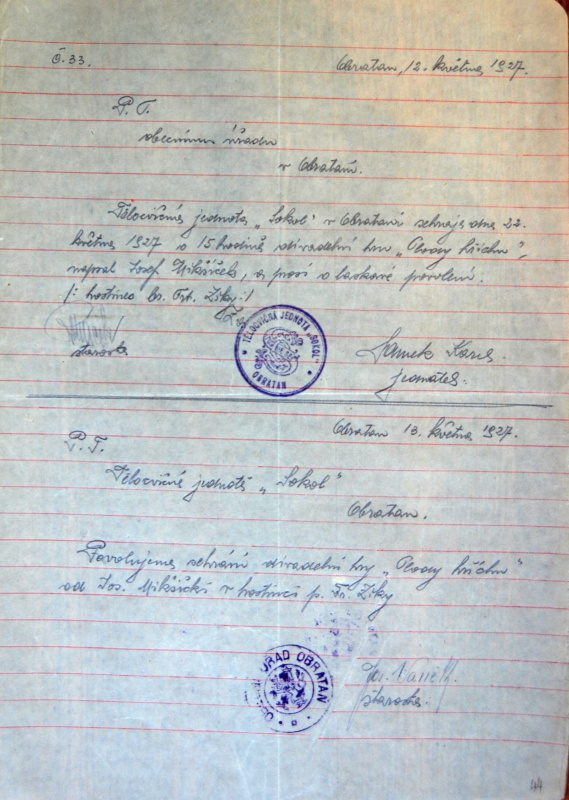 Č.33.
Obratan, 12. května 1927.
P. T.
obecnímu úřadu
v Obratani.
Tělocvičná jednota „Sokol" v Obratani sehraje dne 22.
května 1927 o 15 hodině divadelní hru „Plody hříchu",
napsal Josef Mikšíček, a prosí o laskavé povolení.
/: hostinec br. Frt. Ziky :/
starosta
TĚLOCVIČNÁ JEDNOTA „SOKOL"
OBRATAN
Samek Karel.
jednatel.
Obratan 13. května 1927.
P. T.
Tělocvičné jednotě „Sokol"
Obratan.
Povolujeme sehrání divadelní hry „Plody hříchu"
od Jos. Mikšíčka v hostinci p. Fr. Ziky
OBECNÍ ÚŘAD OBRATAN
Jos.
starosta.
44